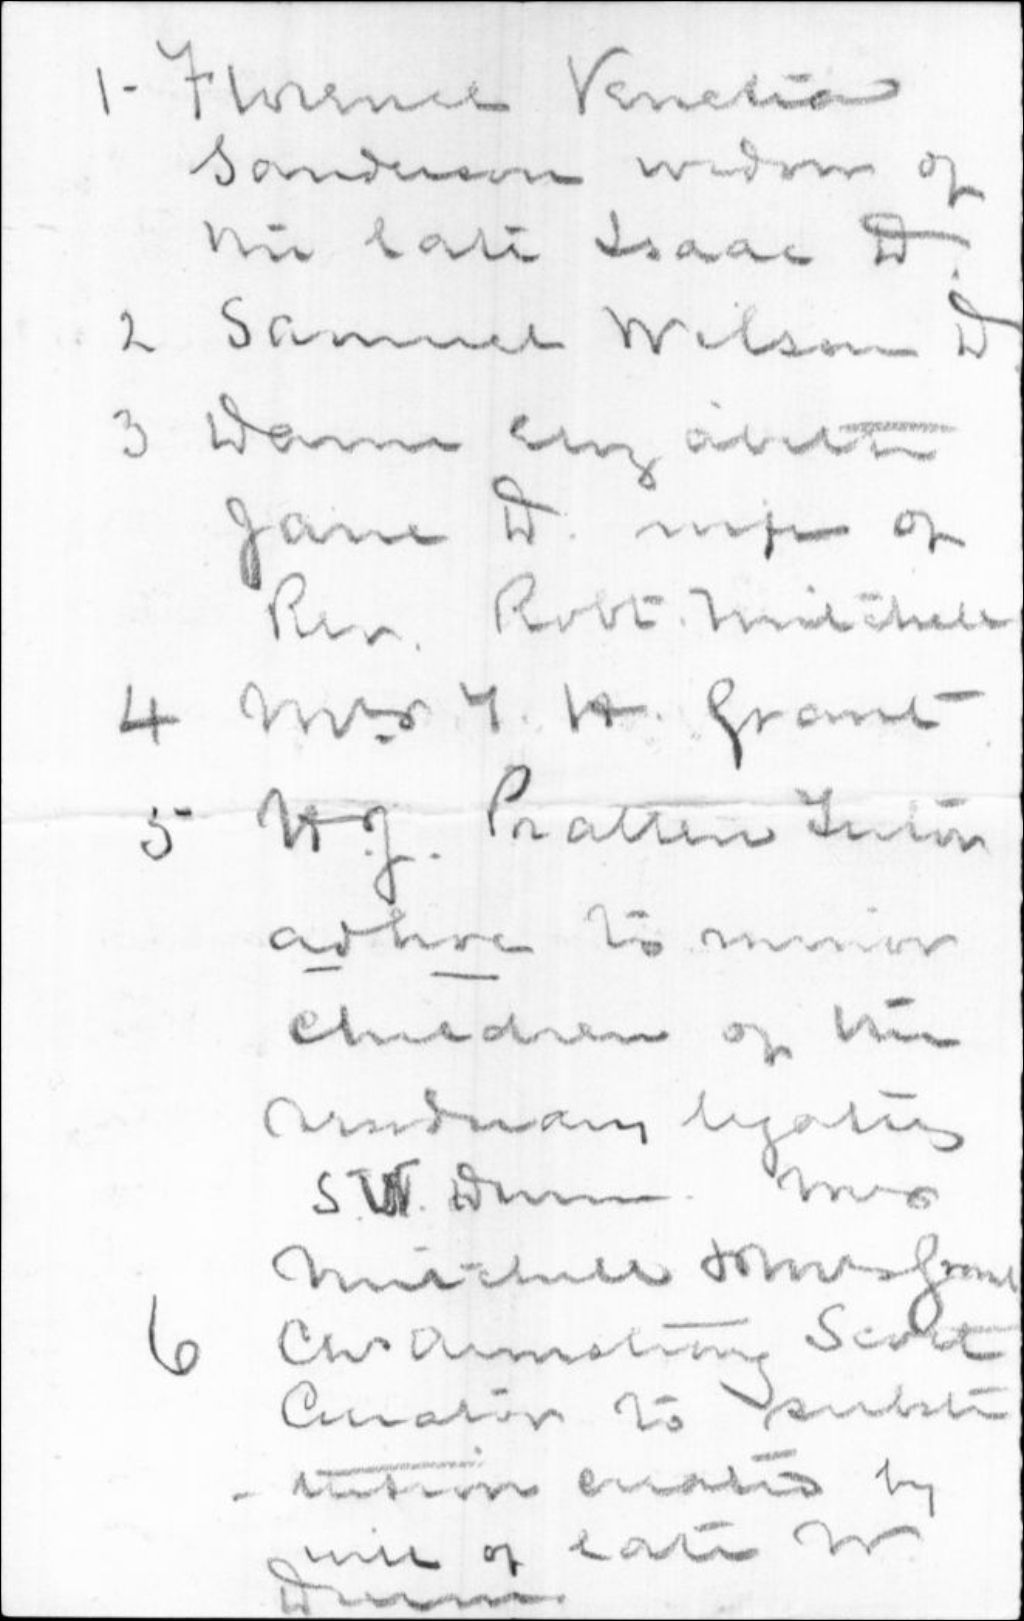 1- Florence Venetia
Sanderson widow of
the late Isaac D.
2 Samuel Wilson D
3 Dame Elizabeth
Jane D. wife of
Rev. Robt. Mitchell
4 Mrs T. H. Grant
5 H. J. Pratten Tutor
adhoc to minor
children of the
residuary legatees
S. W. Dunn Mrs
Mitchell & Mrs Grant
6 Chs Armstrong Scott
Curator to substi
-tution created by
will of late W
Dunn